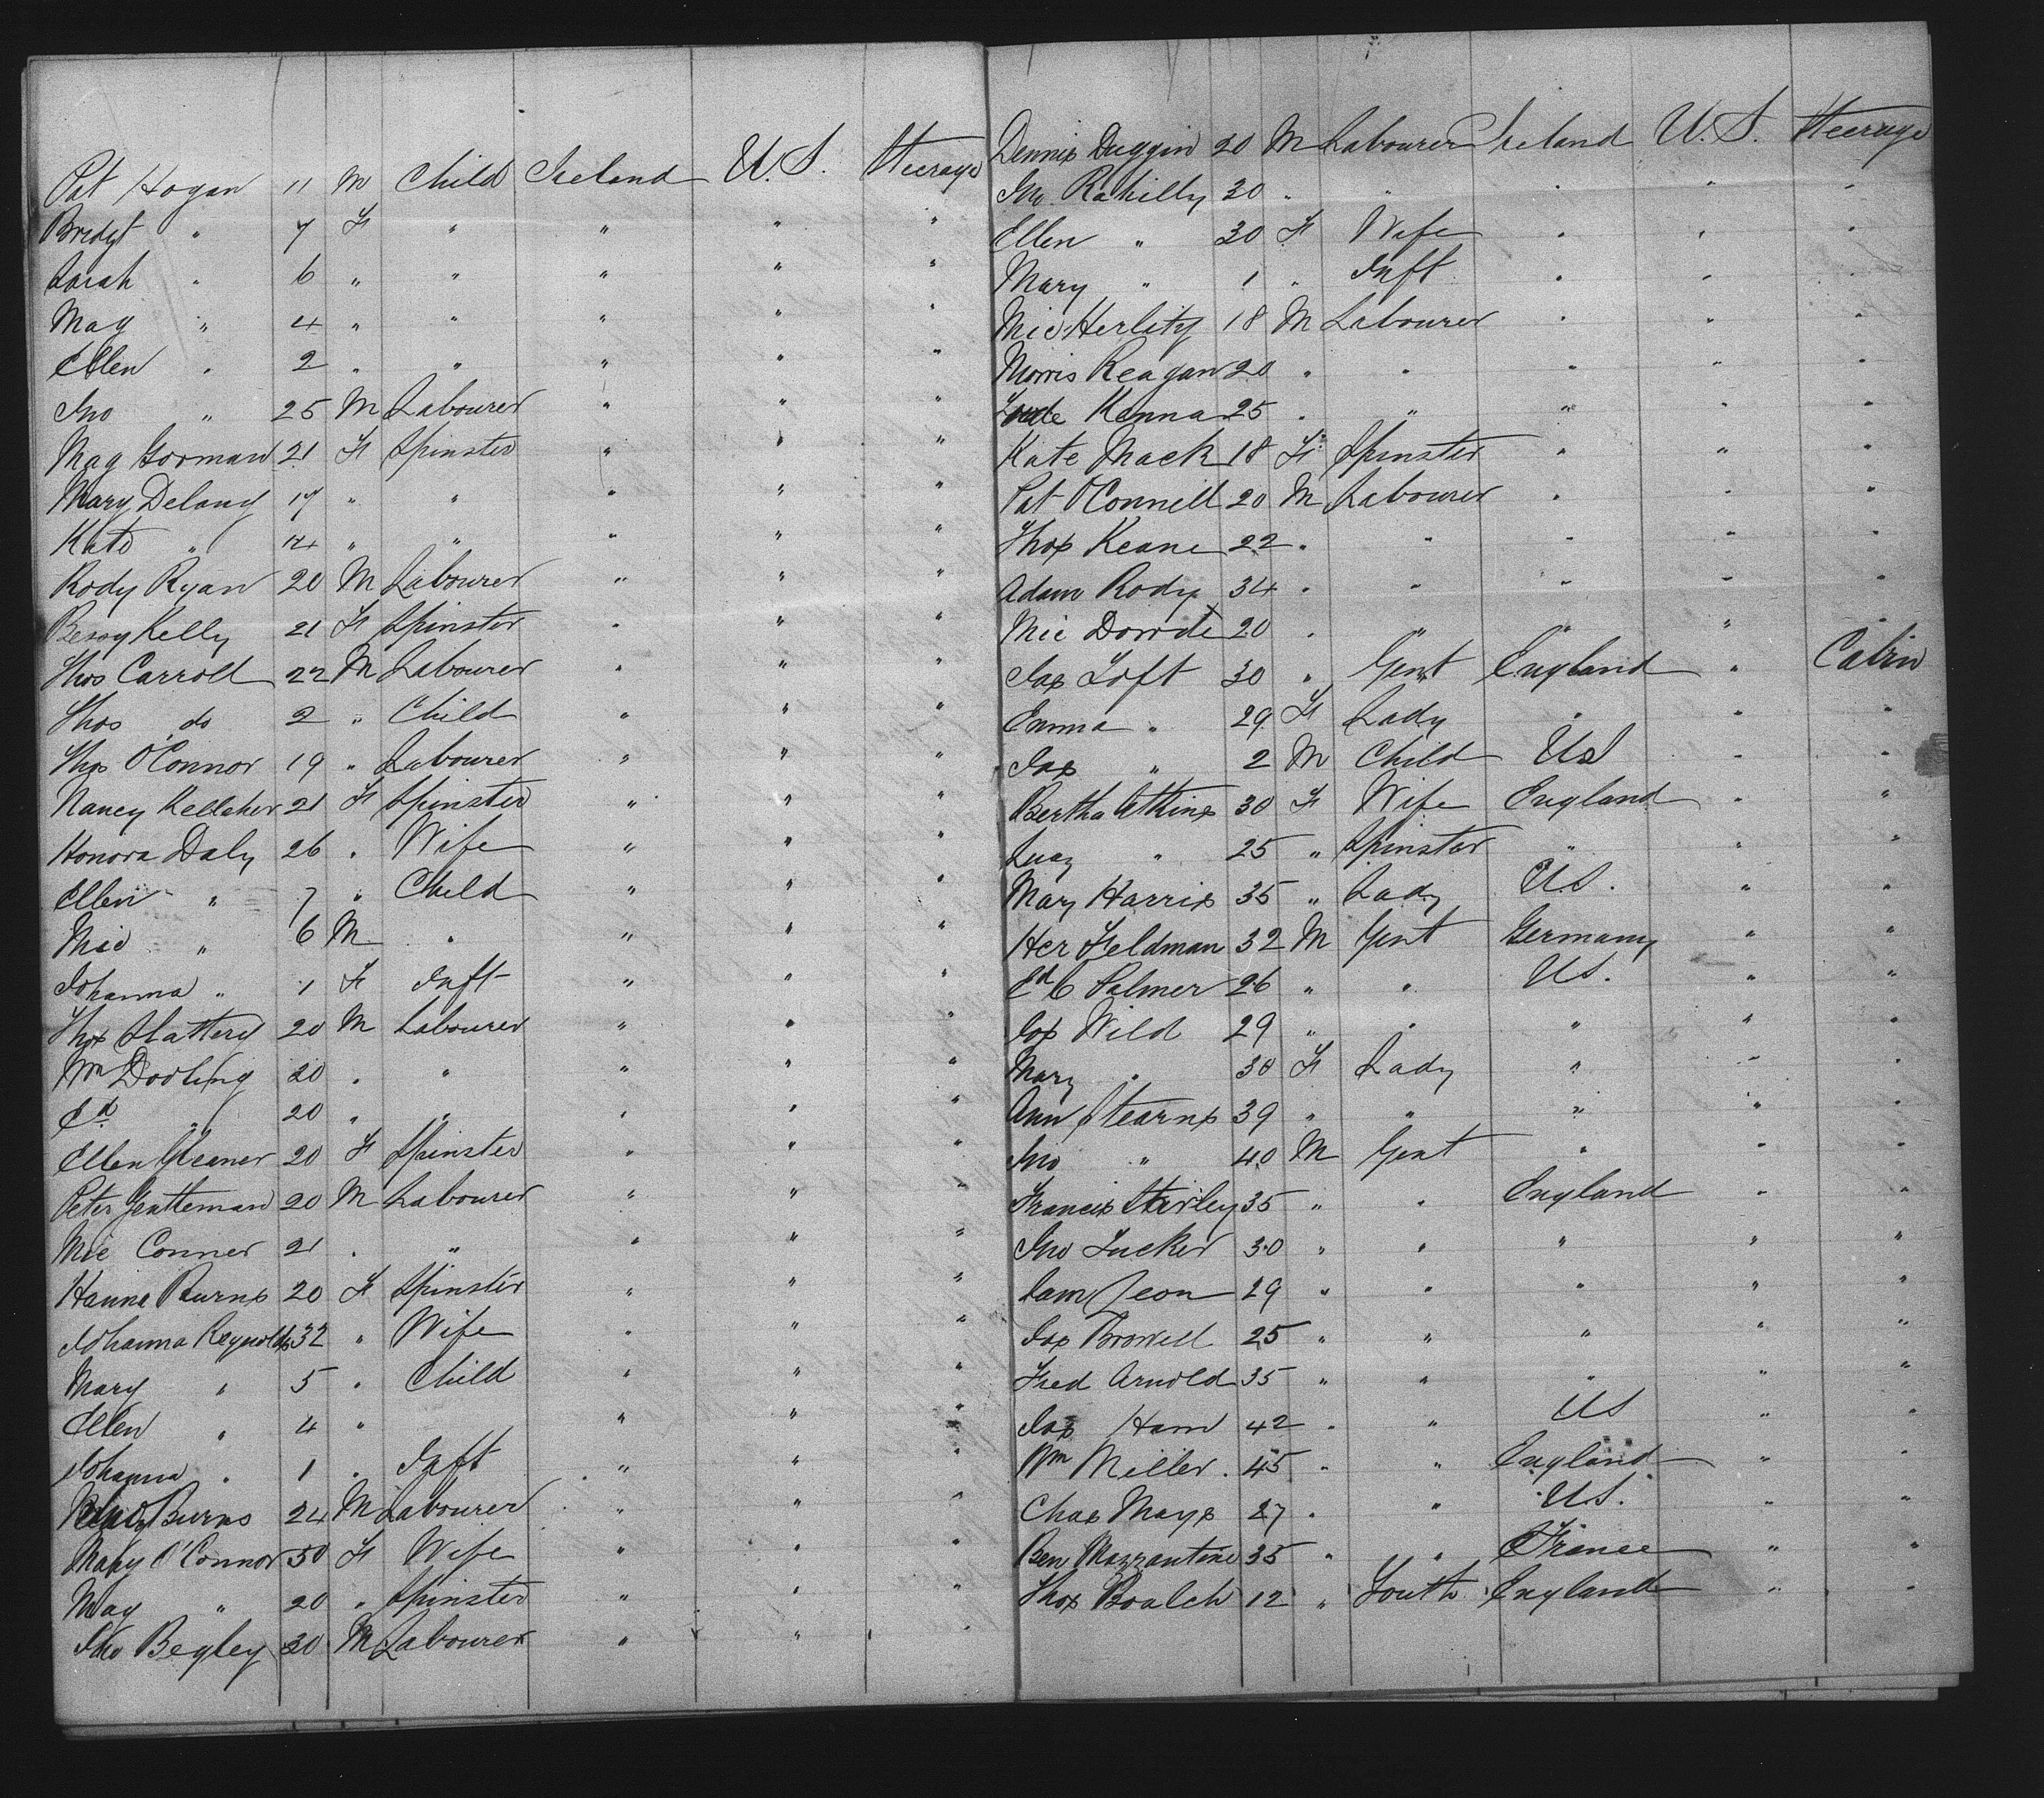 Pat Hogan 11 M Child Ireland U.S. Steerage
Bridgt " 7 F " " " "
Sarah " 6 " " " " "
Mag " 4 " " " " "
Ellen " 2 " " " " "
Jno " 25 M Labourer " " "
Mag Gorman 21 F Spinster " " "
Mary Delany 17 " " " " "
Kate " 14 " " " " "
Rody Ryan 20 M Labourer " " "
Bessy Kelly 21 F Spinster " " "
Thos Carroll 22 M Labourer " " "
Thos do 2 " Child " " "
Thos O'Connor 19 " Labourer " " "
Nancy Kellaher 21 F Spinster " " "
Honora Daly 26 " Wife " " "
Ellen " 7 " Child " " "
Mic " 6 M " " " "
Johanna " 1 F Inft " " "
Thos Slattery 20 M Labourer " " "
Wm Dooling 20 " " " " "
Ed " 20 " " " " "
Ellen Gleaner 20 F Spinster " " "
Peter Gentleman 20 M Labourer " " "
Mic Conner 21 " " " " "
Hanna Burns 20 F Spinster " " "
Johanna Reynolds 32 " Wife " " "
Mary " 5 " Child " " "
Ellen " 4 " " " "
Johanna " 1 " Inft " " "
Burns 24 M Labourer " " "
Mary O'Connor 50 F Wife " " "
May " 20 " Spinster " " "
Jno Begley 30 M Labourer " " "
Dennis Duggin 20 M Labourer Ireland U.S. Steerage
Jno Rahilly 30 " " " " "
Ellen " 30 F Wife " " "
Mary " 1 " Inft " " "
Mic Herlity 18 M Labourer " " "
Morris Reagan 20 " " " " "
Kenna 25 " " " " "
Kate Mack 18 F Spinster " " "
Pat O'Connell 20 M Labourer " " "
Thos Keane 22 " " " " "
Adam Rody 34 " " " " "
Mic Dowde 20 " " " " "
Jas Loft 30 " Gent England " Cabin
Emma " 29 F Lady " " "
Jas " 2 M Child US " "
Bertha Atkins 30 F Wife England " "
Lucy " 25 " Spinster " " "
Mary Harris 35 " Lady U.S. " "
Her Feldman 32 M Gent Germany " "
Ed C Palmer 26 " " US. " "
Jos Wild 29 " " " " "
Mary " 30 F Lady " " "
Ann Stearns 39 " " " " "
Jno " 40 M Gent " " "
Francis Stirley 35 " " England " "
Jno Tucker 30 " " " " "
Sam Leon 29 " " " " "
Jas Browell 25 " " " " "
Fred Arnold 35 " " " " "
Jas Ham 42 " " US " "
Wm Miller 45 " " England " "
Chas Mays 27 " " U.S. " "
Ben Mazzantine 35 " " France " "
Thos Boalch 12 " Youth England " "